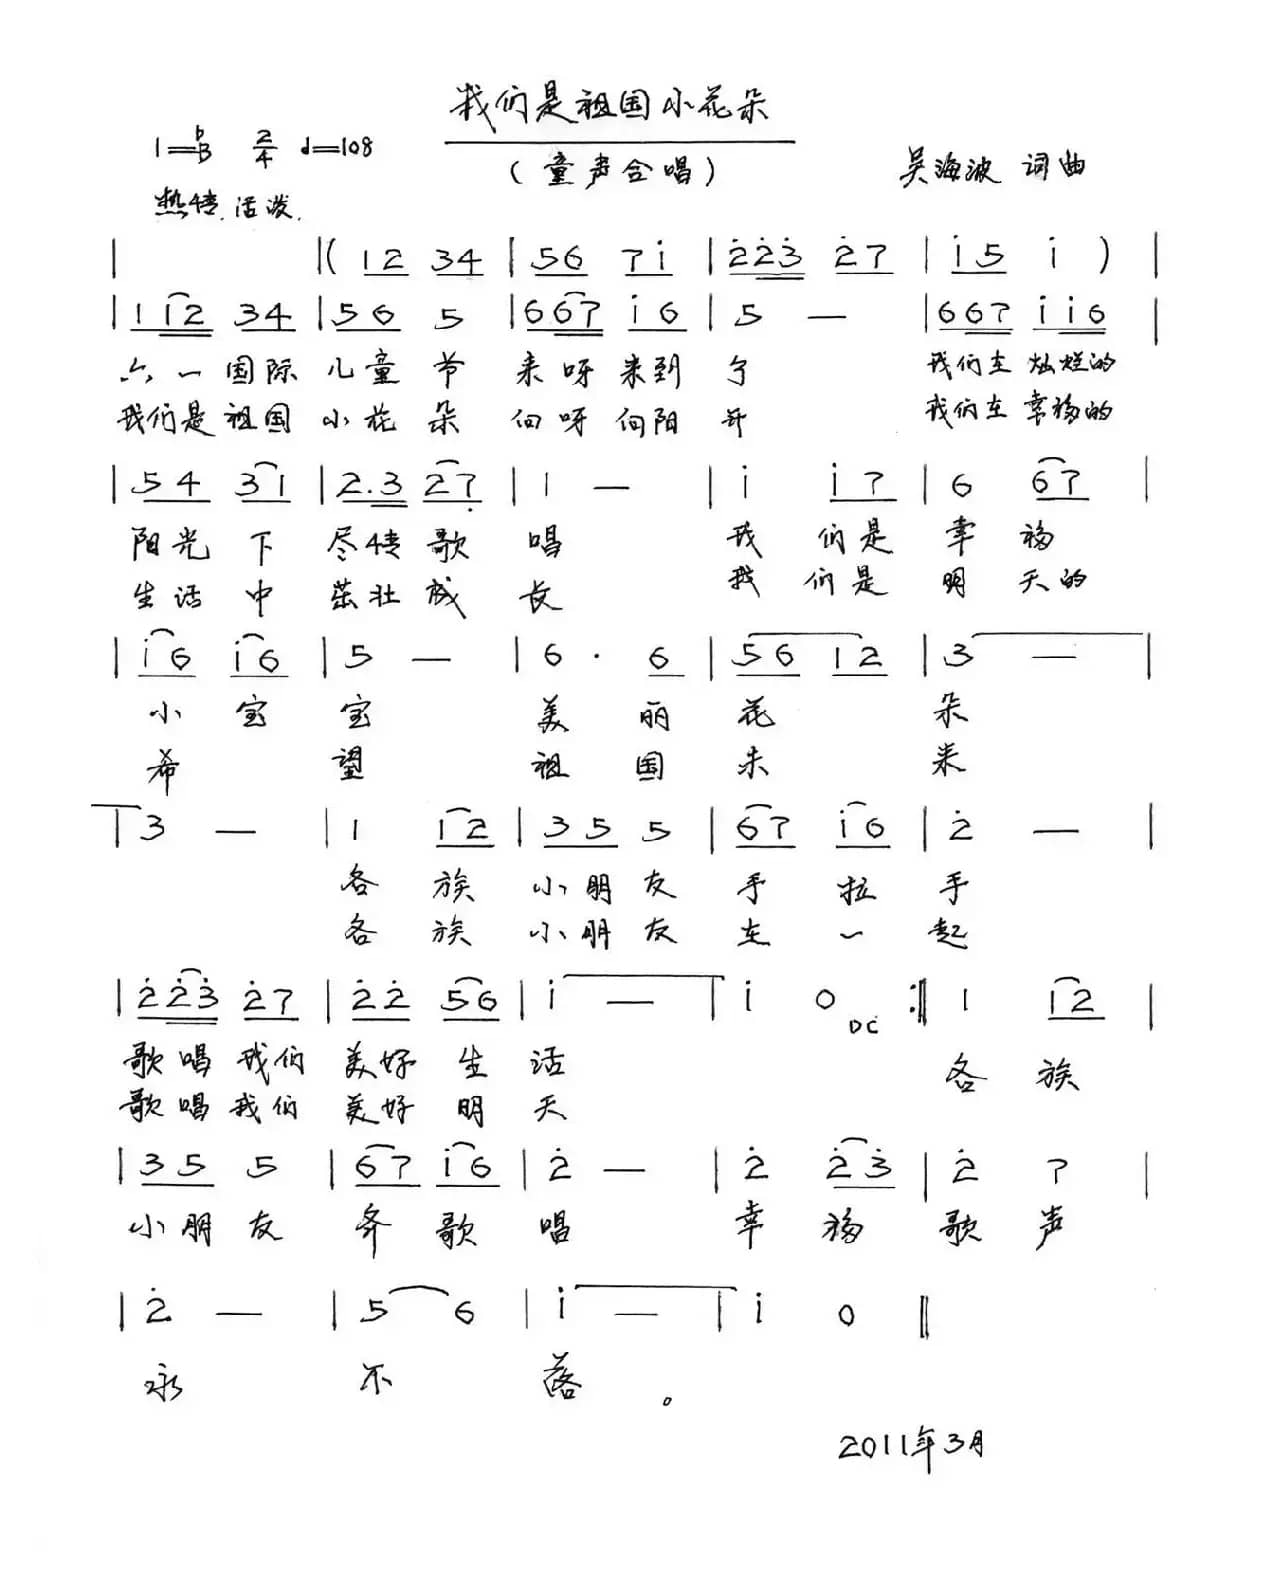 我们是祖国小花朵
1=♭B 2/4 d=108
(童声合唱)
吴海波 词曲
热情.活泼.
| |( 1 2 3 4 | 5 6 7 i | 2̇ 2̇ 3̇ 2̇ 7 | i 5 i ) |
| 1 1 2 3 4 | 5 6 5 | 6 6 7 i 6 | 5 — | 6 6 7 i i 6 |
六一国际 儿童节 来呀来到了 我们在灿烂的
我们是祖国 小花朵 向呀向阳开 我们在幸福的
| 5 4 3 1 | 2. 3 2 7̣ | 1 — | i i 7 | 6 6 7 |
阳光下 尽情歌唱 我们是幸福
生活中 茁壮成长 我们是明天的
| i 6 i 6 | 5 — | 6 · 6 | 5 6 1 2 | 3 — |
小宝宝 美丽花朵
希望 祖国未来
3 — | 1 1 2 | 3 5 5 | 6 7 i 6 | 2̇ — |
各族 小朋友 手拉手
各族 小朋友 在一起
| 2̇ 2̇ 3̇ 2̇ 7 | 2̇ 2̇ 5 6 | i — | i 0 :‖ 1 1 2 |
DC
歌唱我们 美好生活 各族
歌唱我们 美好明天
| 3 5 5 | 6 7 i 6 | 2̇ — | 2̇ 2̇ 3̇ | 2̇ 7 |
小朋友 齐歌唱 幸福歌声
| 2̇ — | 5 6 | i — | i 0 ‖
永不落。
2011年3月